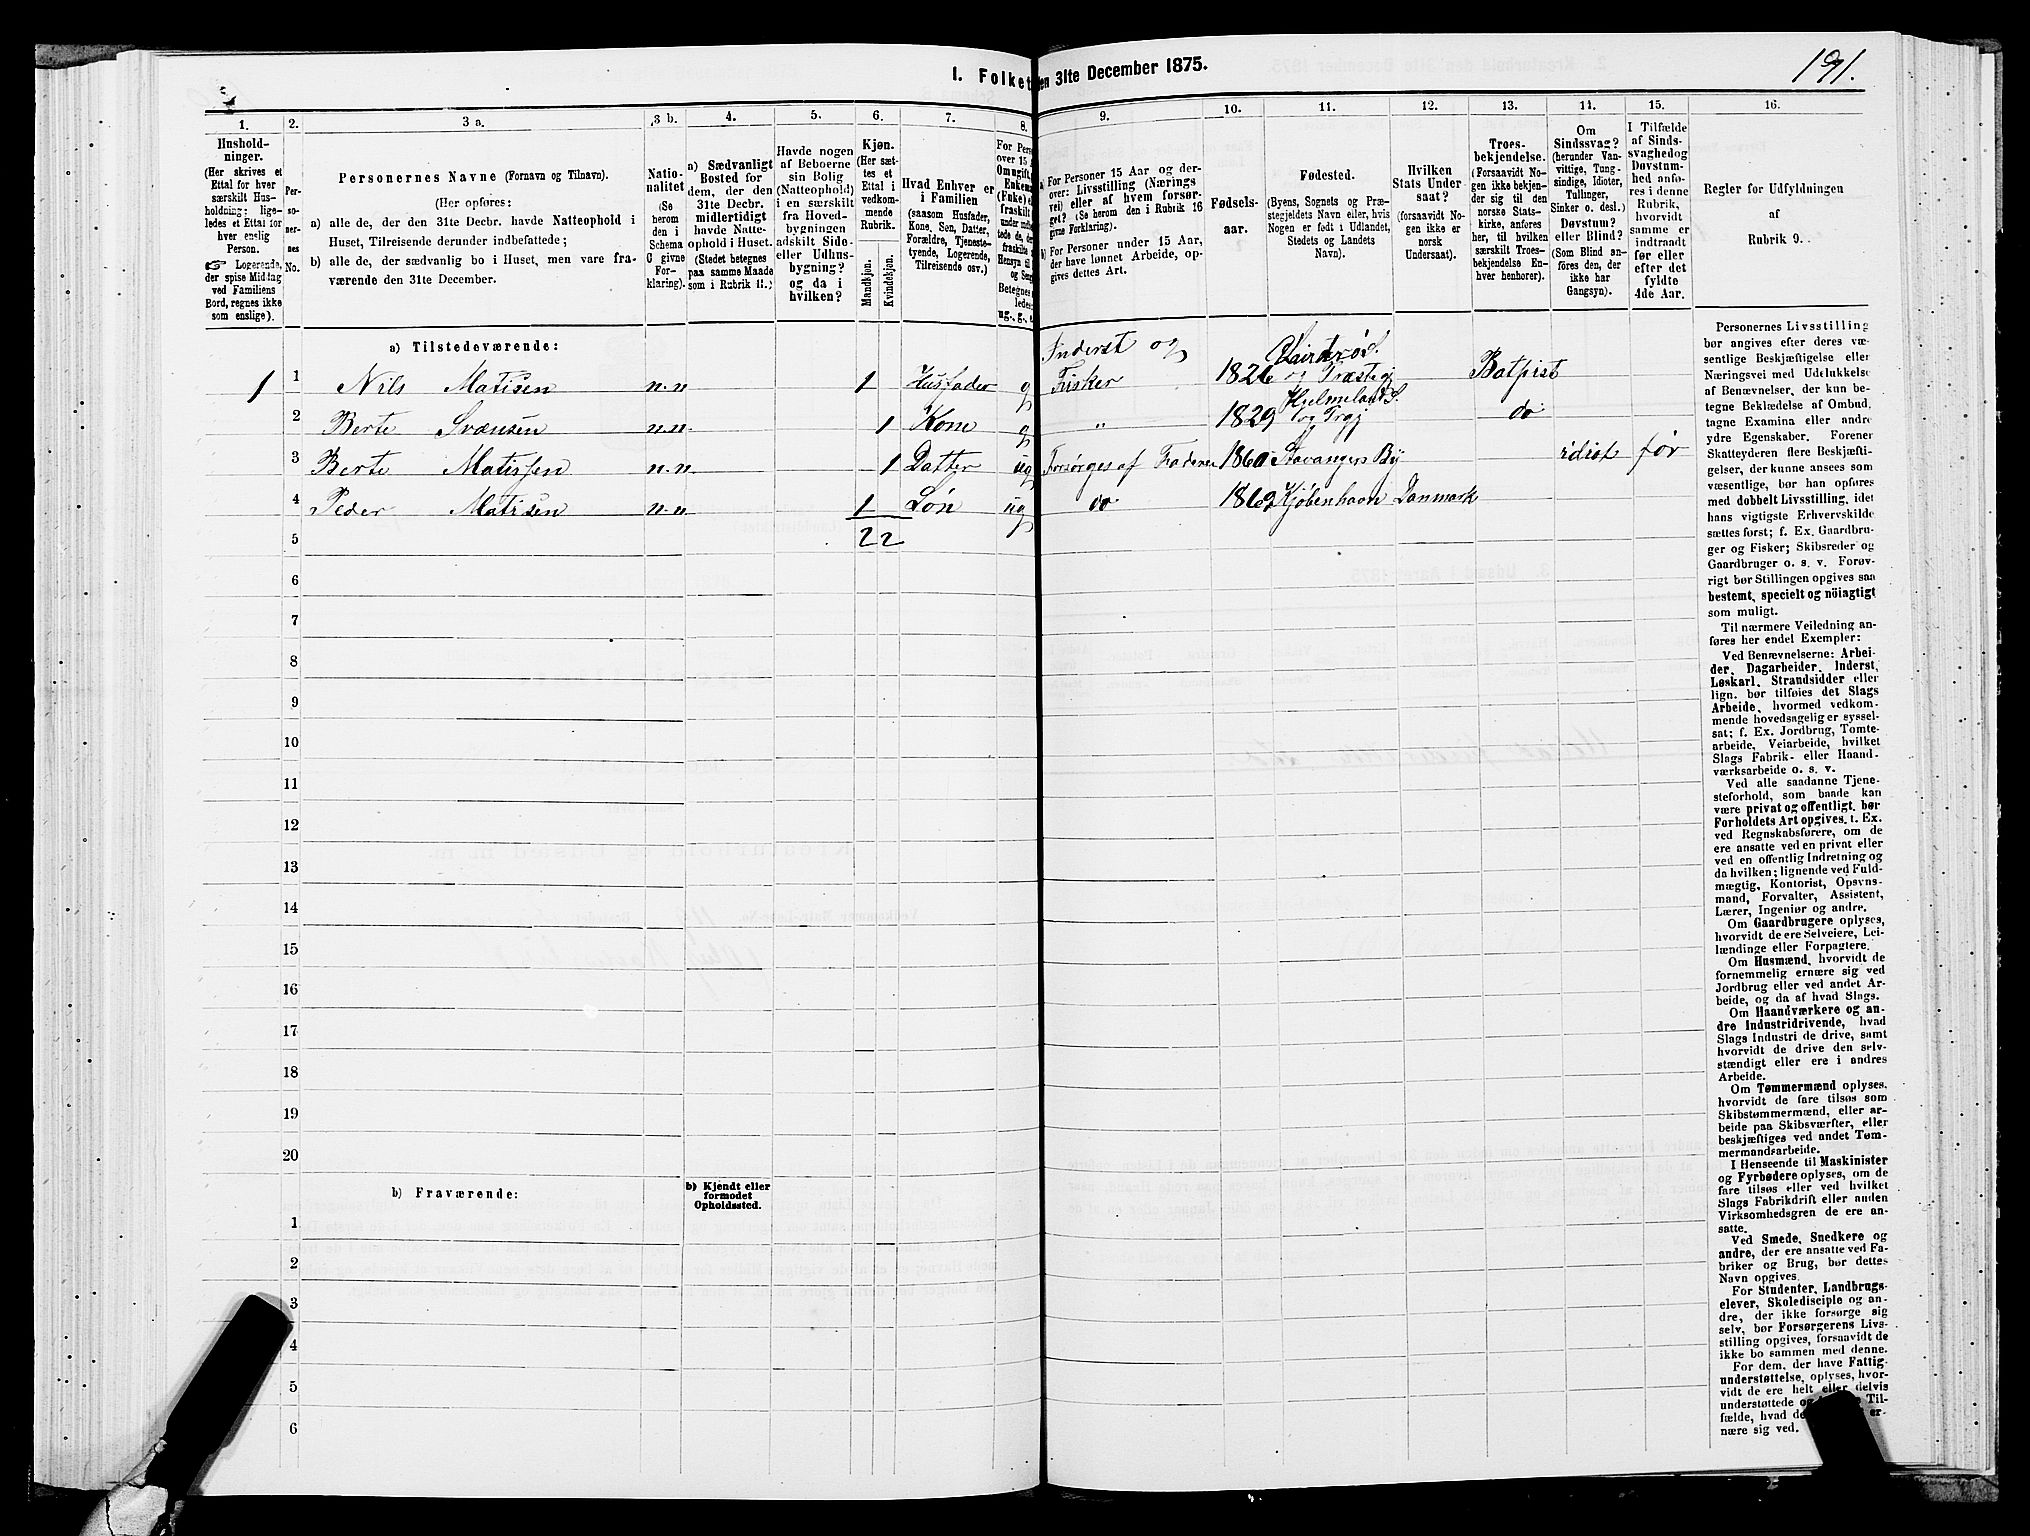 1. Folket
en 31te December 1875.
191.
1.
2.
3 a.
3 b.
4.
5.
6.
7.
8.
9.
10.
11.
12.
13.
11.
15.
16.
Hushold-
ninger.
(Her skrives et
Ettal for hver
særskilt Hus-
holdning: lige-
ledes et Ettal for
hver enslig
Person.
☞ Logerende,
der spise Middag
ved Familiens
Bord, regnes ikke
som enslige).
Per-
so-
ner-
nes
No.
Personernes Navne (Fornavn og Tilnavn).
(Her opføres:
a) alle de, der den 31te Decbr. havde Natteophold i
Huset, Tilreisende derunder indbefattede;
b) alle de, der sædvanlig bo i Huset, men vare fra-
værende den 31te December.
Natio-
nalitet
(Se
herom
den i
Schema
C givne
For-
klaring).
a) Sædvanligt
Bosted for
dem, der den
31te Decbr.
midlertidigt
havde Natte-
ophold i Huset.
(Stedet betegnes
paa samme Maade
som i Rubrik 11.)
Havde nogen
af Beboerne
sin Bolig
(Natteophold)
i en særskilt
fra Hoved-
bygningen
adskilt Side-
eller Udhus-
bygning?
og da i
hvilken?
Kjøn.
(Her sæt-
tes et
Ettal i
vedkom-
mende
Rubrik.
Mandkjøn.
Kvindekjøn.
Hvad Enhver er
i Familien
(saasom Husfader,
Kone, Søn, Datter,
Forældre, Tjeneste-
tyende, Logerende,
Tilreisende osv.)
For Pers
over 15
Omugift,
Enkem
(Enke) e
fraskilt
under indbe
tede de, der
fraskilte
Hensyn til
og Sen
Betegnes
ledes
ug., g., e.
a) For Personer 15 Aar og der-
over: Livsstilling (Nærings
vei) eller af hvem forsør-
get? (Se herom den i Rubrik 16
givne Forklaring).
b) For Personer under 15 Aar,
der have lønnet Arbeide, op-
gives dettes Art.
Fødsels-
aar.
Fødested.
(Byens, Sognets og Præ-
stegjeldets Navn eller, hvis
Nogen er født i Udlandet,
Stedets og Landets
Navn).
Hvilken
Stats Under
saat?
(forsaavidt No-
gen ikke er
norsk
Undersaat).
Troes-
bekjendelse.
(Forsaavidt No-
gen ikke bekjen-
der sig til den
norske Stats-
kirke, anføres
her, til hvilken
særskilt Troes-
bekjendelse En-
hver henhorer).
Om
Sindssvag?
(herunder Van-
vittige, Tung-
sindige, Idioter,
Tullinger,
Sinker o. desl.)
Døvstum?
eller Blind?
(Som Blind an-
føres den, der
ikke har
Gangsyn).
I Tilfælde
af Sinds-
svaghedog
Døvstum-
hed anfø-
res i denne
Rubrik,
hvorvidt
samme er
indtraadt
før eller
efter det
fyldte
4de Aar.
Regler for Udfyldningen
af
Rubrik 9.
a) Tilstedeværende:
Inderst og
1 1 Nils Matisen n.n 1 Husfader g Fisker 1826 og Præstegj Batpist
Hjelmeland S.
2 Berte Svænsen n.n. 1 Kone g " 1829 og Prgj do
3 Berte Matissen n.n 1 Datter ug Forsørges af Faderen 1860 Stavangers By idiot før
4 Peder Matisen n.n 1 Søn ug do 1869 Kjøbenhavn Danmark
5 2 2
6
7
8
9
10
11
12
13
14
15
16
17
18
19
20
b) Fraværende:
b) Kjendt eller
formodet
Opholdssted.
1
2
3
4
5
6
Personernes Livsstilling
bør angives efter deres væ-
sentlige Beskjæftigelse eller
Næringsvei med Udelukkelse
af Benævnelser, der kun be-
tegne Beklædelse af Ombud,
tagne Examina eller andre
ydre Egenskaber. Forener
Skatteyderen flere Beskjæfti-
gelser, der kunne ansees som
væsentlige, bør han opføres
med dobbelt Livsstilling, idet
hans vigtigste Erhvervskilde
sættes først; f. Ex. Gaardbru-
ger og Fisker; Skibsreder og
Gaardbruger o. s. v. Forøv-
rigt bør Stillingen opgives saa
bestemt, specielt og nöiagtigt
som muligt.
Til nærmere Veiledning an-
føres her endel Exempler:
Ved Benævnelserne: Arbei-
der, Dagarbeider, Inderst,
Løskarl, Strandsidder eller
lign. bør tilføies det Slags
Arbeide, hvormed vedkom-
mende hovedsagelig er syssel-
sat; f. Ex. Jordbrug, Tomte-
arbeide, Veiarbeide, hvilket
Slags Fabrik- eller Haand-
værksarbeide o. s. v.
Ved alle saadanne Tjene-
steforhold, som baade kan
være privat og offentligt, bør
Forholdets Art opgives, t. Ex.
ved Regnskabsførere, om de
ere ansatte ved en privat eller
ved en offentlig Indretning og
da hvilken; lignende ved Fuld-
mægtig, Kontorist, Opsyns-
mand, Forvalter, Assistent,
Lærer, Ingeniør og andre.
Om Gaardbrugere oplyses,
hvorvidt de ere Selveiere, Lei-
lændinge eller Forpagtere.
Om Husmænd, hvorvidt de
fornemmelig ernære sig ved
Jordbrug eller ved andet Ar-
beide, og da af hvad Slags.
Om Haandværkere og an-
dre Industridrivende, hvad
Slags Industri de drive, samt
hvorvidt de drive den selv-
stændigt eller ere i andres
Arbeide.
Om Tømmermænd oplyses,
hvorvidt de fare tilsøs som
Skibstømmermænd, eller ar-
beide paa Skibsværfter, eller
beskjæftiges ved andet Tøm-
mermandsarbeide.
I Henseende til Maskinister
og Fyrbødere oplyses, om de
fare tilsøs eller ved hvilket
Slags Fabrikdrift eller anden
Virksomhedsgren de ere an-
satte.
Ved Smede, Snedkere og
andre, der ere ansatte ved Fa-
briker og Brug, bør dettes
Navn opgives.
For Studenter, Landbrugs-
elever, Skoledisciple og an-
dre, der ikke forsørge sig
selv, bør Forsørgerens Livs-
stilling opgives, forsaavidt de
ikke bo sammen med denne.
For dem, der have Fattig-
understøttelse, oplyses, hvor-
vidt de ere helt eller delvis
understøttede og
Til-
fælde, hvad de er-
nære sig ved.